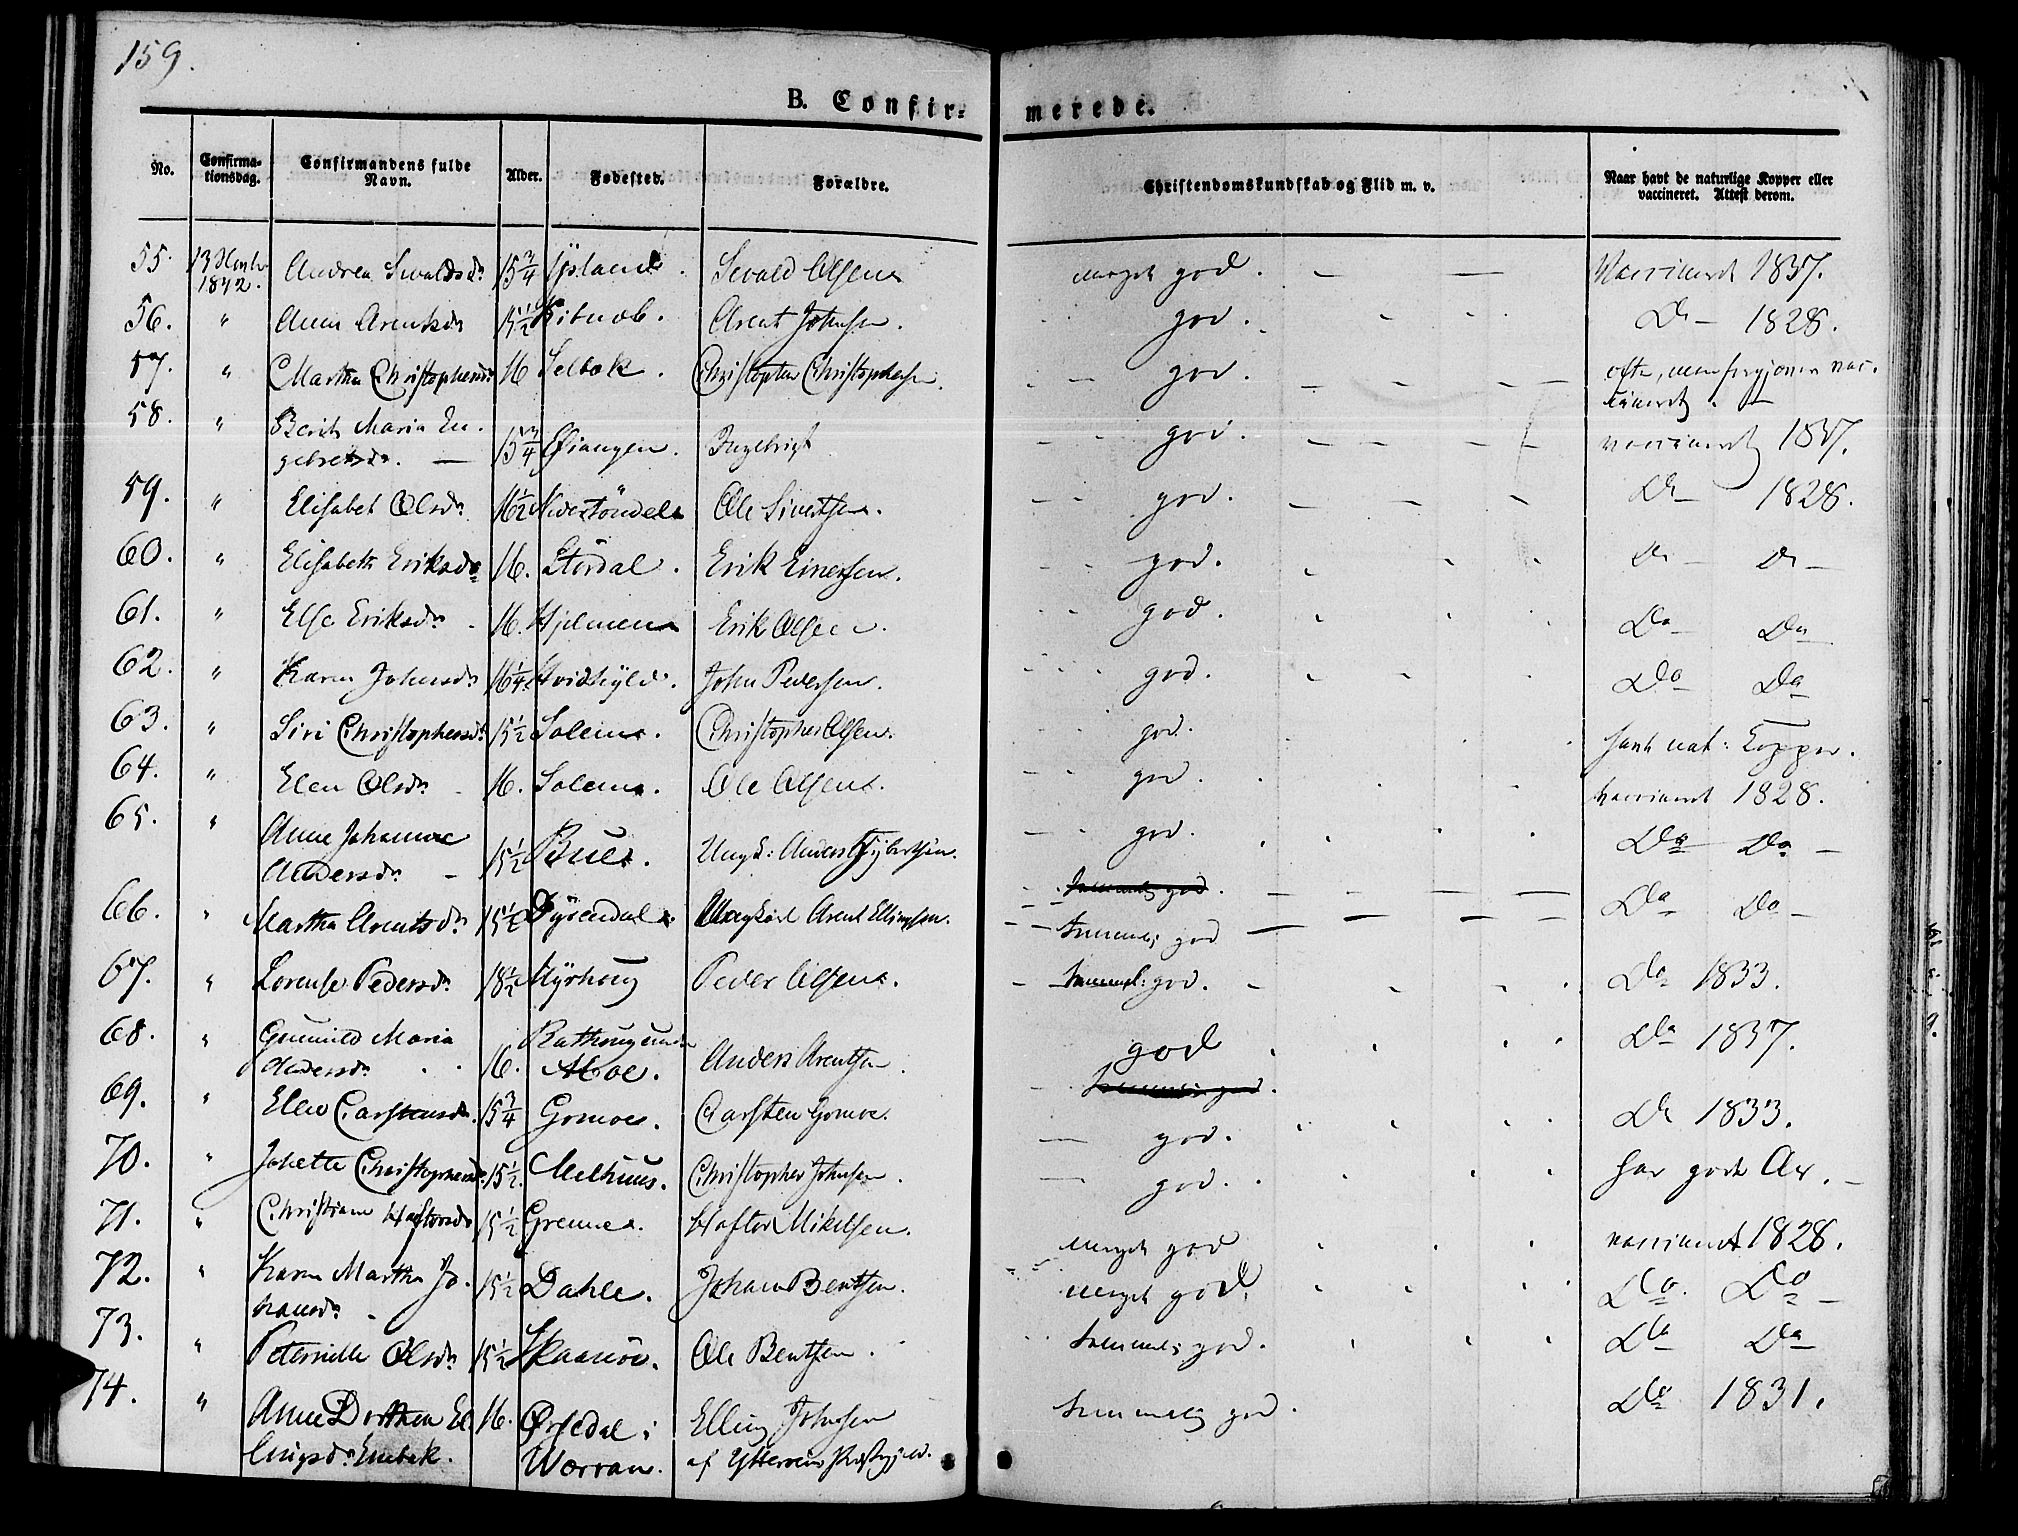 159.
B. Confir-
merede.
No. Confirma-tionsdag. Confirmandens fulde Navn. Alder. Fødested. Forældre. Christendomskundskab og Flid m. v. Naar havt de naturlige Kopper eller vaccineret. Attest derom.
55. 13 1842. Andrea Sivaldsdr 15 3/4 Sevald Olsen meget god. — — Vaccineret 1837.
56. " Anne Arentsdr 15 1/2 Arent Johnsen. god. Do — 1828.
57. " Martha Christophersdr 16 Selbæk. Christopher Christophersen. god. ofte, men forgjæves vac-
cineret. —
58. " Berit Maria En-
gebretsdr. — 15 3/4 Ingebrigt god. vaccineret 1837.
59. " Elisabet Olsdr 16 1/2 Ole Sivertsen. god. Do — 1828.
60. " Elisabeth Eriksdr 16. Størdal. Erik Einersen. god. Do — Do —
61. " Else Eriksdr. 16. Hjelmen Erik Olsen. god. Do — Do
62. " Karen Johnsdr 16 1/4 John Pedersen. god. Do Do
63. " Siri Christophersdr. 15 1/2 Salem. Christopher Olsen. god. havt nat: Kopper.
64. " Elen Olsdr. 16. Salem. Ole Olsen. god. vaccineret 1828.
65. " Anne Johanna
Andersdr. — 15 1/2 Bue. Ungk: Anders god. Do Do —
66. " Martha Arentsdr. 15 1/2 Dyrendal Ungkarl Arent Ellingsen. temmelig god
temmelig god Do Do —
67. " Lorense Pedersdr. 18 1/2 Myrhoug Peder Olsen. temmel: god. Do 1833.
68. " Gunnild Maria
Andersdr. 16. Moe. Anders Arentsen. god
temmelig god. Do 1837.
69. " Elen Carstensdr. 15 3/4 Gomoe. Carsten Gomoe. god. Do 1833.
70. " Johette Christophersdr. 15 1/2. Melhuus. Christopher Johnsen. god. har gode Ar. —
71. " Christiane Haftorsdr 15 1/2 Grenne. Haftor Mikelsen. meget god vaccineret 1828.
72. " Karen Martha Jo-
hansdr. 15 1/2 Dahle. Johan Bentsen. meget god. Do. Do —
73. " Peternille Olsdr. 15 1/2 Skaanøe. Ole Bentsen. temmelig god. Do Do
74. " Anne Dorthea El-
lingsdr. 16. Ørsedal i
Værran. Elling Johnsen
af Ytterøens Præstegjeld. temmelig god. Do 1831.